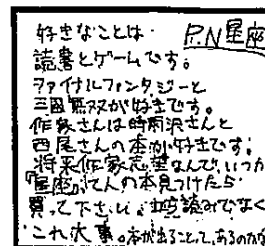 P.N星座
好きなことは
読書とゲームです。
ファイナルファンタジーと
三國無双が好きです。
作家さんは時雨沢さんと
西尾さんの本が好きです。
将来作家志望なんで、いつか
「星座」て人の本見つけたら
買って下さい。立ち読みでなく
これ大事。本が出ることって、あるのかな